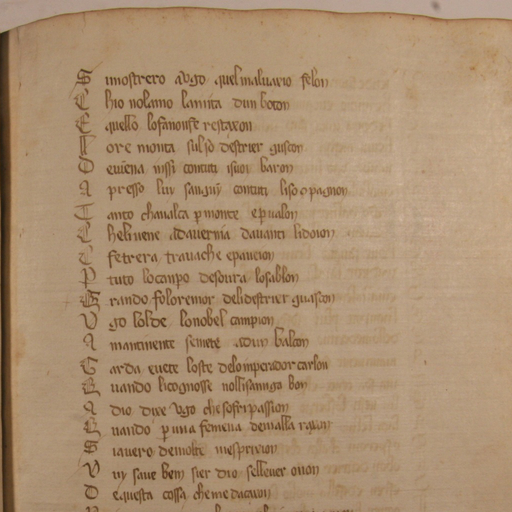 S imostrero avgo quel maluaxio felon
C hio nolamo lamita dun boton
E quello lofanonse restaxon
A ore monta sulso destrier guscon
O euena nissi contuti isuoi baron
A presso lui sanguin contuti liso conpagnon
T anto chaualca per monte e per ualon
C heluene adauernia dauanti lidoion
E fetrera trauache epaueion
P tuto locanpo desoura losablon
G rando foloremor delidestrier guascon
V go lolde lonobel campion
A mantinente seuete adun balcon
G arda euete loste delonperador carlon
Q uando licognosse nolli sa miga bon
A dio dixe vgo che sofri passion
Q uando per una femena demalla raxon
S iauero demolte mesprixion
V uy saue bem sier dio selleuer onon
D e questa cossa che me da caxon